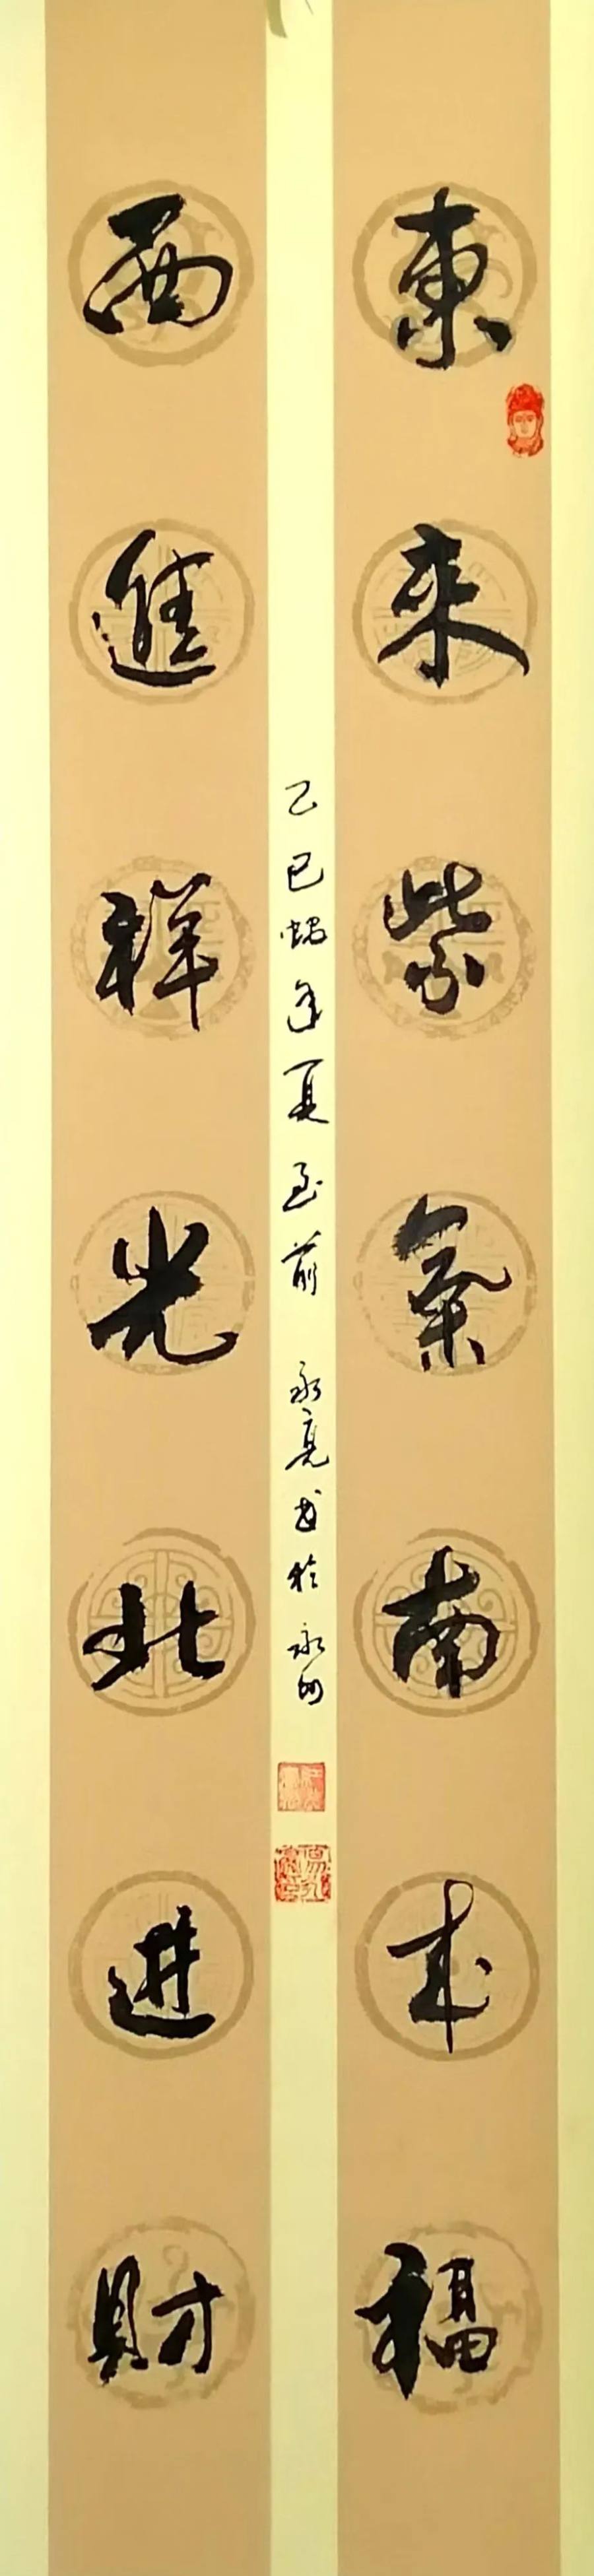 東来紫氣南来福
西進祥光北进財
乙巳蛇年夏至前 永亮書於永州